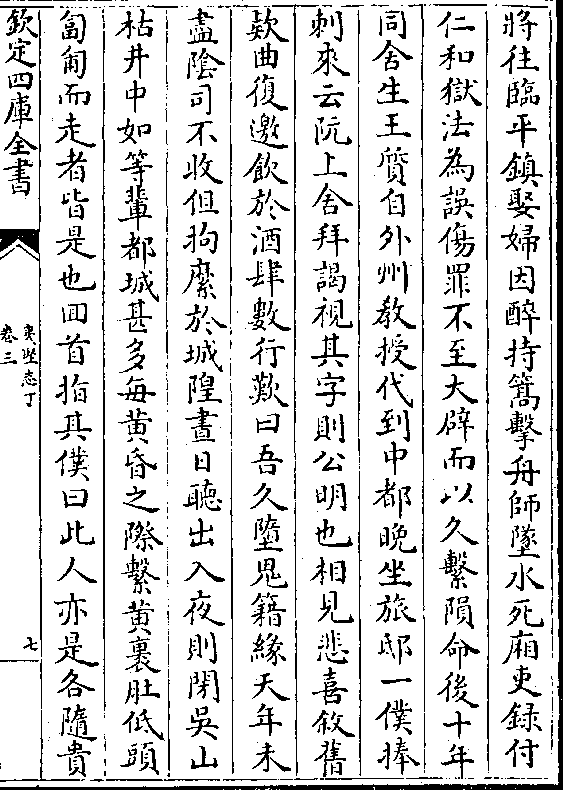 將往臨平鎮娶婦因醉持篙擊舟師墜水死廂吏録付
仁和獄法為誤傷罪不至大辟而以久繫隕命後十年
同舍生王質自外州教授代到中都晚坐旅邸一僕捧
刺來云阮上舍拜謁視其字則公明也相見悲喜敘舊
欵曲復邀飲於酒肆數行歎曰吾久墮鬼籍緣天年未
盡陰司不收但拘縻於城隍晝日聽出入夜則閉吳山
枯井中如等輩都城甚多每黄昏之際繫黄裹肚低頭
匐匍而走者皆是也回首指其僕曰此人亦是各隨貴
欽定四庫全書
夷堅志丁
卷三
七